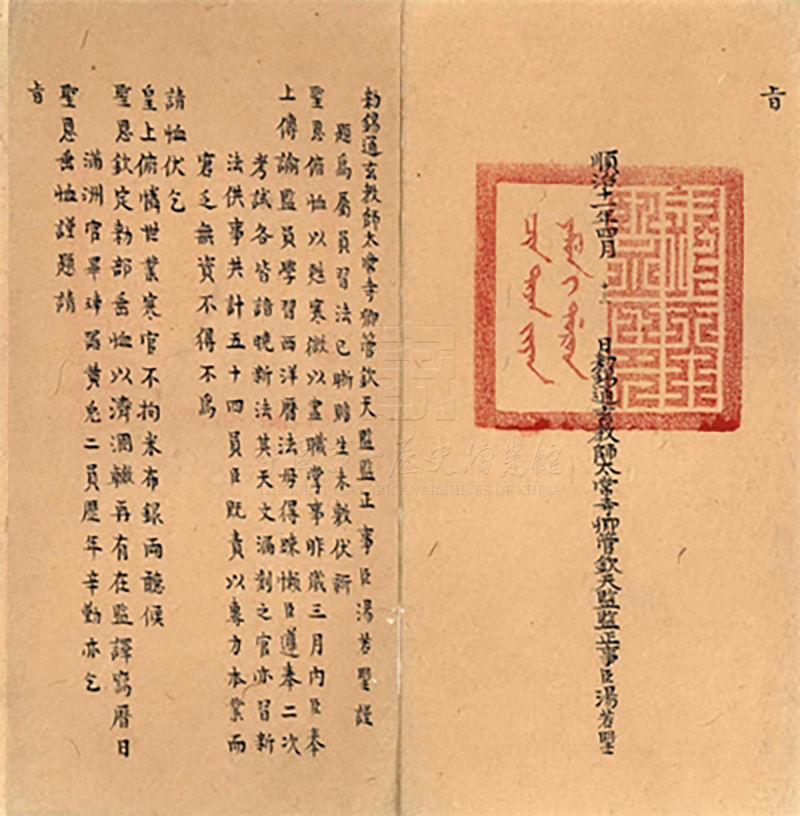 勅錫通玄教師太常寺卿管欽天監監正事臣湯若望謹
題為屬員習法已晰贍生未敷伏祈
聖恩俯恤以甦寒微以盡職掌事昨歲三月內臣奉
上傳諭監員學習西洋曆法毋得踈懶臣遵奉二次
考試各皆諳曉新法其天文漏刻之官亦習新
法供事共計五十四員臣既責以專力本業而
窘乏無資不得不為
請恤伏乞
皇上俯憐世業寒官不拘米布銀兩聽候
聖恩欽定勅部垂恤以濟涸轍再有在監譯寫曆日
滿洲官畢黃兔二員歷年辛勤亦乞
聖恩垂恤謹題請
旨
旨
順治十一年四月 日勅錫通玄教師太常寺卿管欽天監監正事臣湯若望